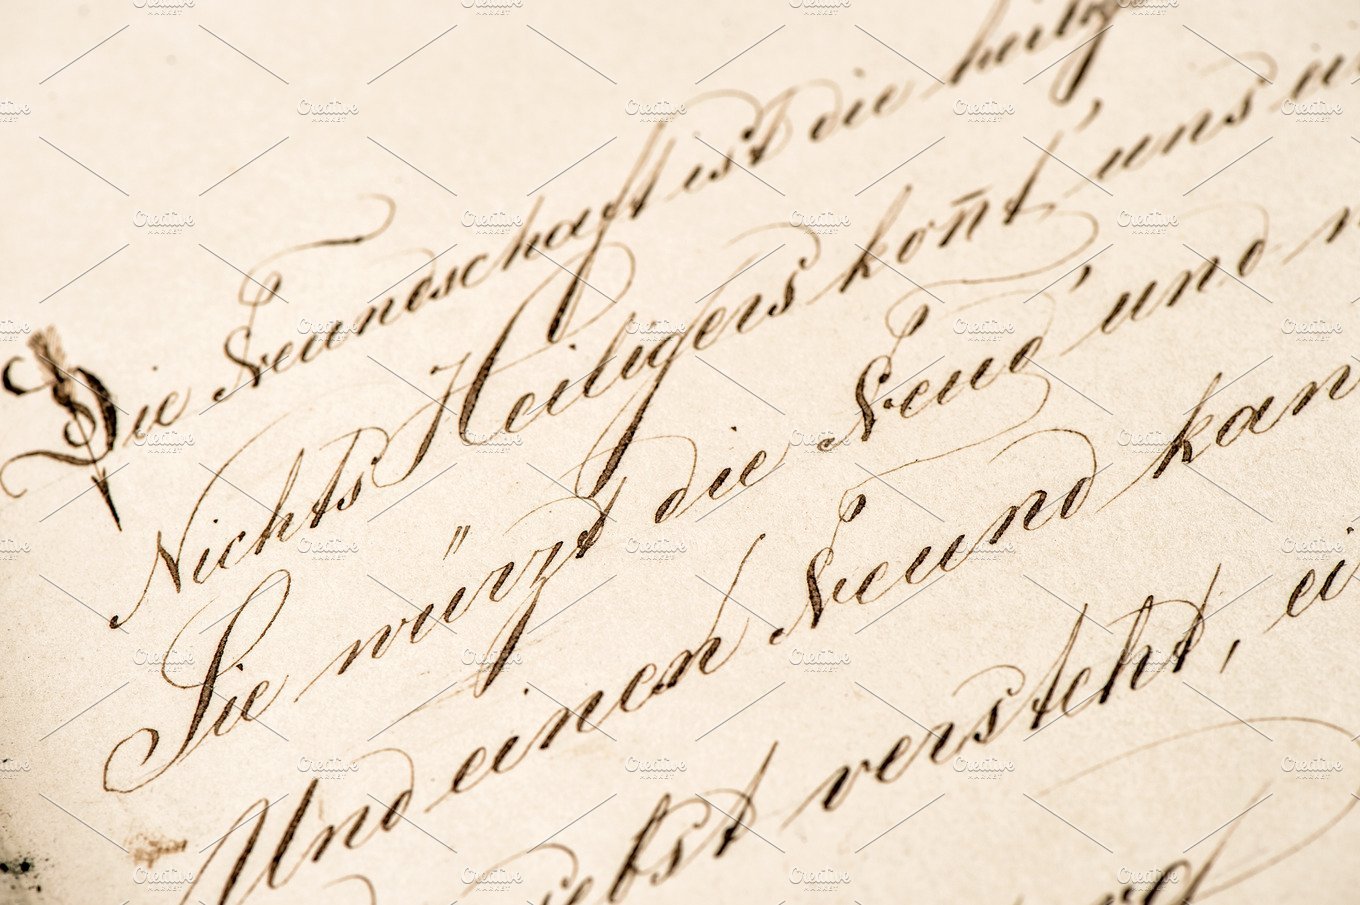 Die Freundschaft ist die heilig
Nichts Heiligers kon̄t' uns
Sie würzt die Freud' und
Und einen Freund kan
liebst versteht,